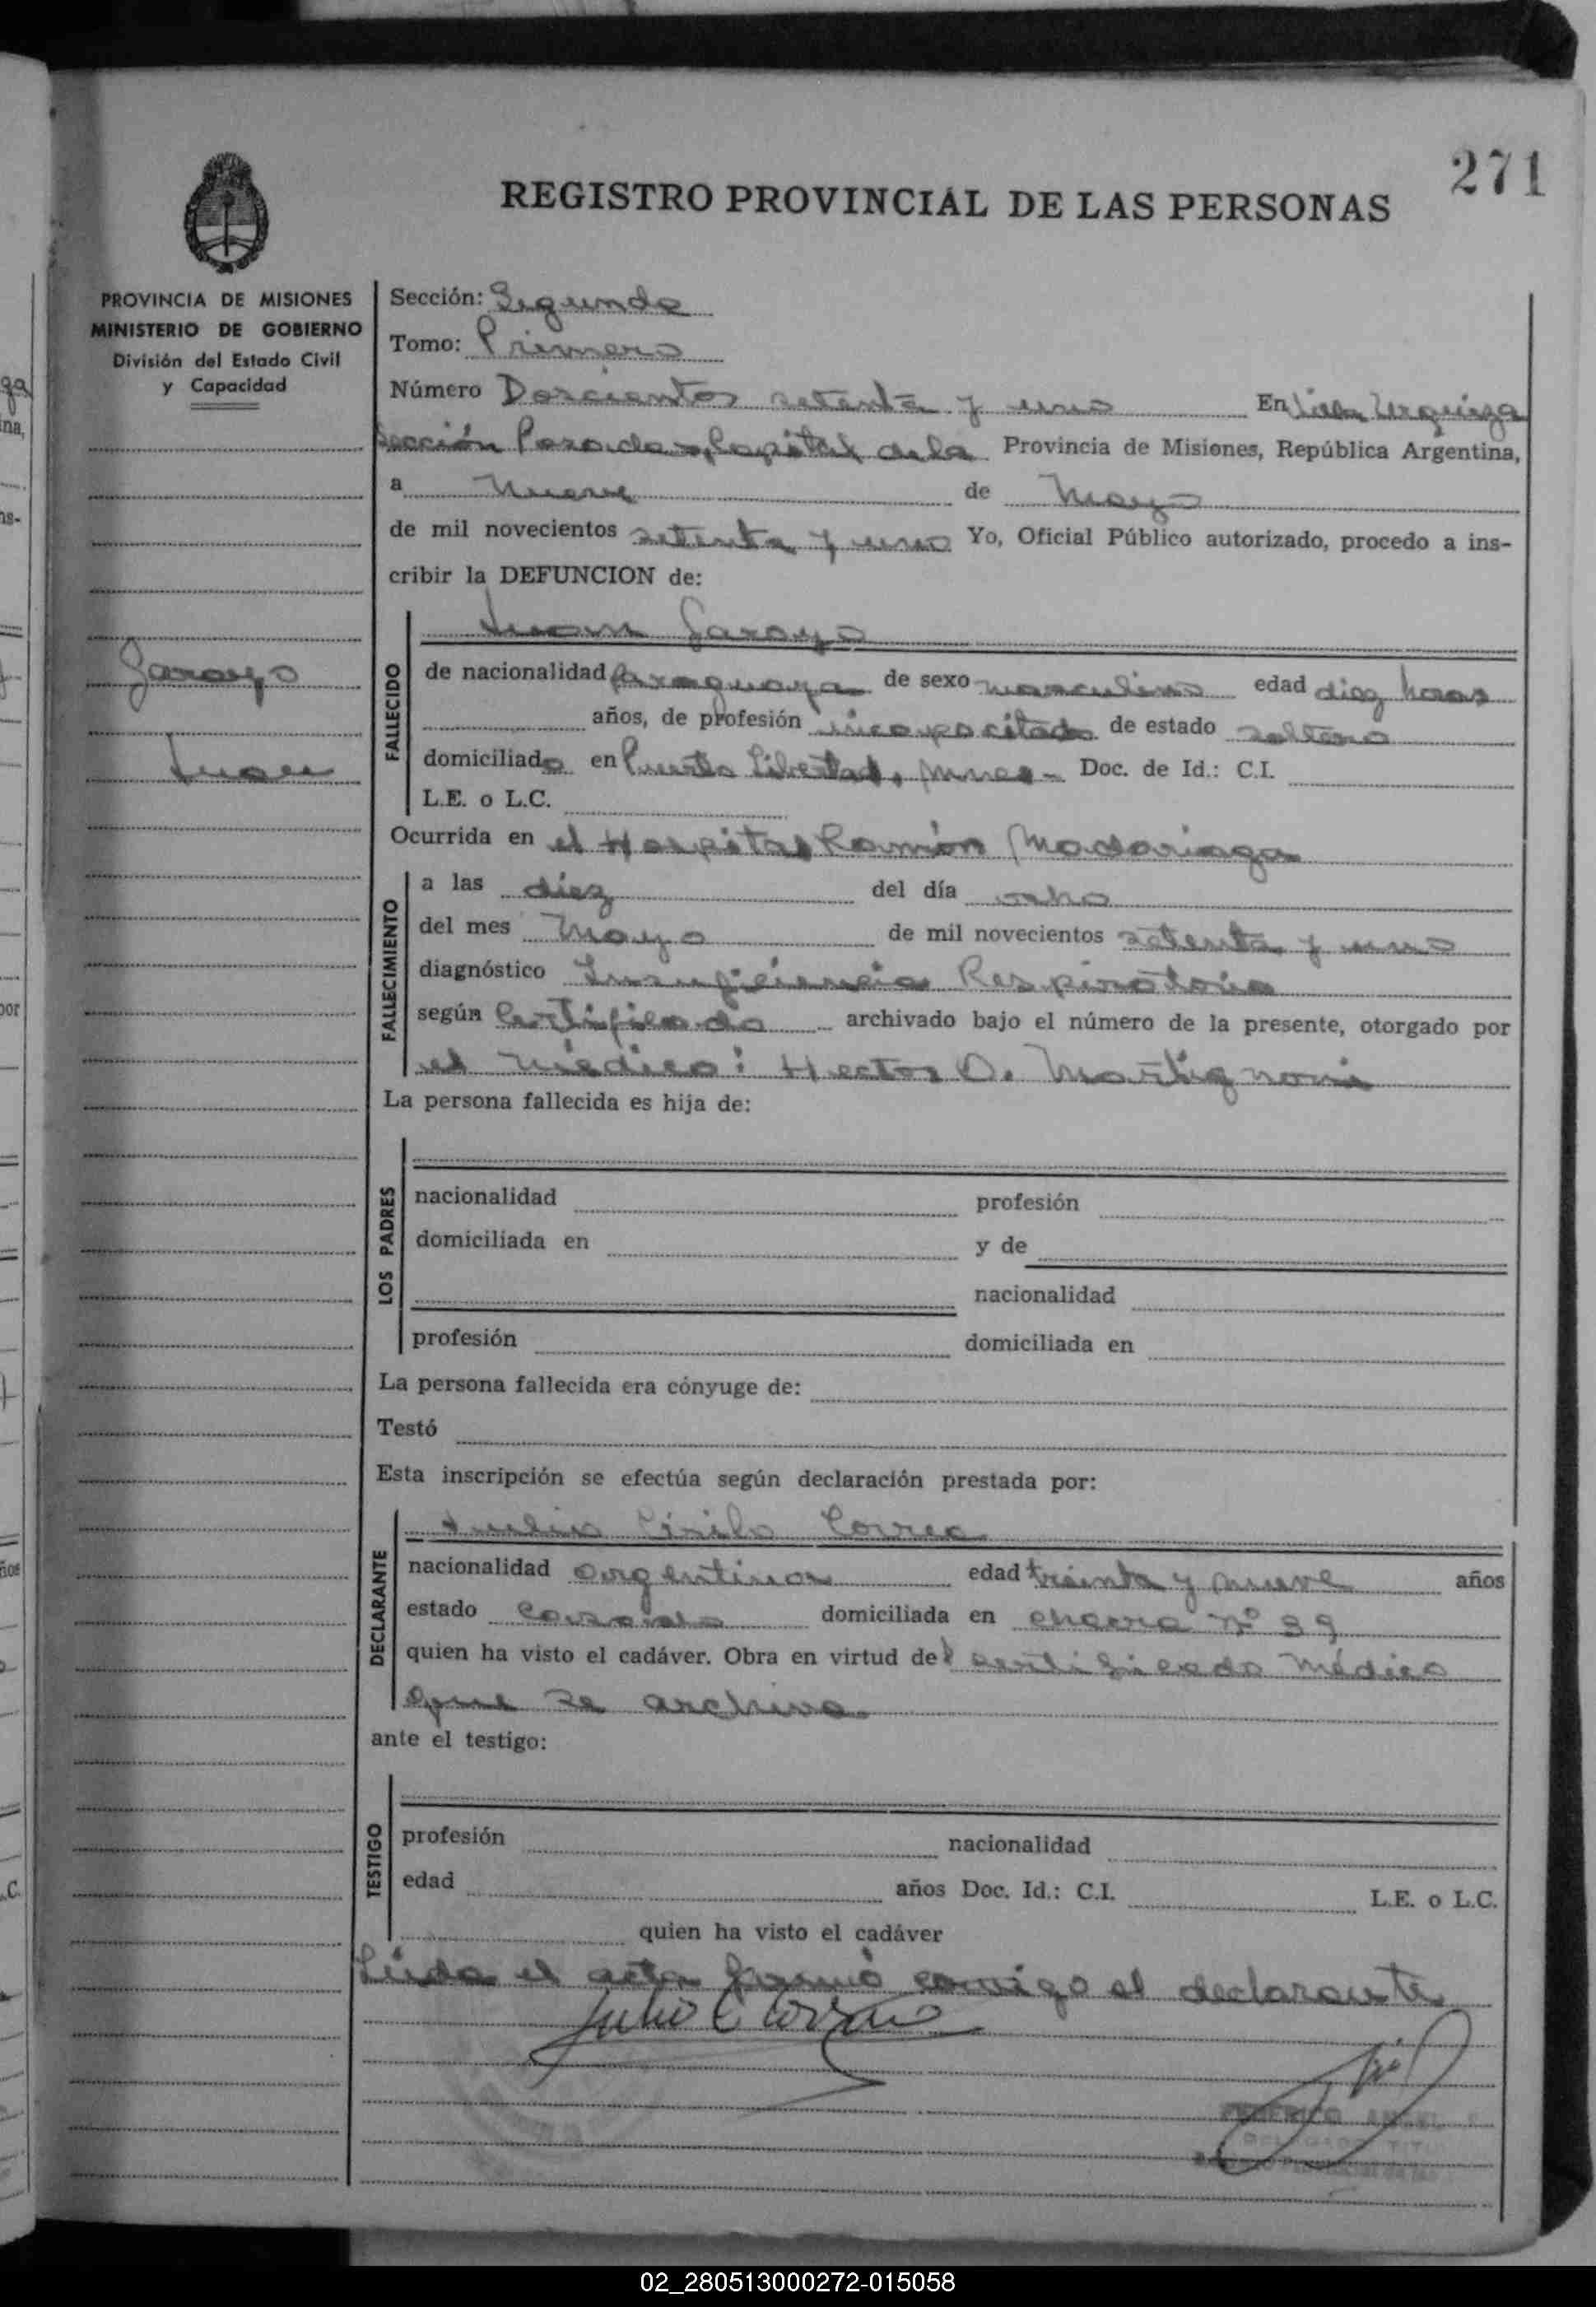 271
REGISTRO PROVINCIAL DE LAS PERSONAS
PROVINCIA DE MISIONES
MINISTERIO DE GOBIERNO
División del Estado Civil
y Capacidad
Garayo
Juan
Sección: Segunda
Tomo: Primero
Número Doscientos setenta y uno En Villa Urquiza
Sección Posadas, Capital de la Provincia de Misiones, República Argentina,
a Nueve de Mayo
de mil novecientos setenta y uno Yo, Oficial Público autorizado, procedo a ins-
cribir la DEFUNCION de:
FALLECIDO
Juan Garayo
de nacionalidad Paraguaya de sexo masculino edad diez horas
años, de profesión incapacitado de estado soltero
domiciliado en Puerto Libertad, Mnes - Doc. de Id.: C.I.
L.E. o L.C.
Ocurrida en el Hospital Ramón Madariaga
FALLECIMIENTO
a las diez del día ocho
del mes Mayo de mil novecientos setenta y uno
diagnóstico Insuficiencia Respiratoria
según Certificado archivado bajo el número de la presente, otorgado por
el médico: Hector O. Martignoni
La persona fallecida es hija de:
LOS PADRES
nacionalidad profesión
domiciliada en y de
nacionalidad
profesión domiciliada en
La persona fallecida era cónyuge de:
Testó
Esta inscripción se efectúa según declaración prestada por:
DECLARANTE
Julio Cirilo Correa
nacionalidad argentina edad treinta y nueve años
estado casado domiciliada en chacra Nº 39
quien ha visto el cadáver. Obra en virtud del certificado médico
que se archiva.
ante el testigo:
TESTIGO
profesión nacionalidad
edad años Doc. Id.: C.I. L.E. o L.C.
quien ha visto el cadáver
Leída el acta firmó conmigo el declarante
Julio C Correa
FEDERICO ANGEL
02_280513000272-015058